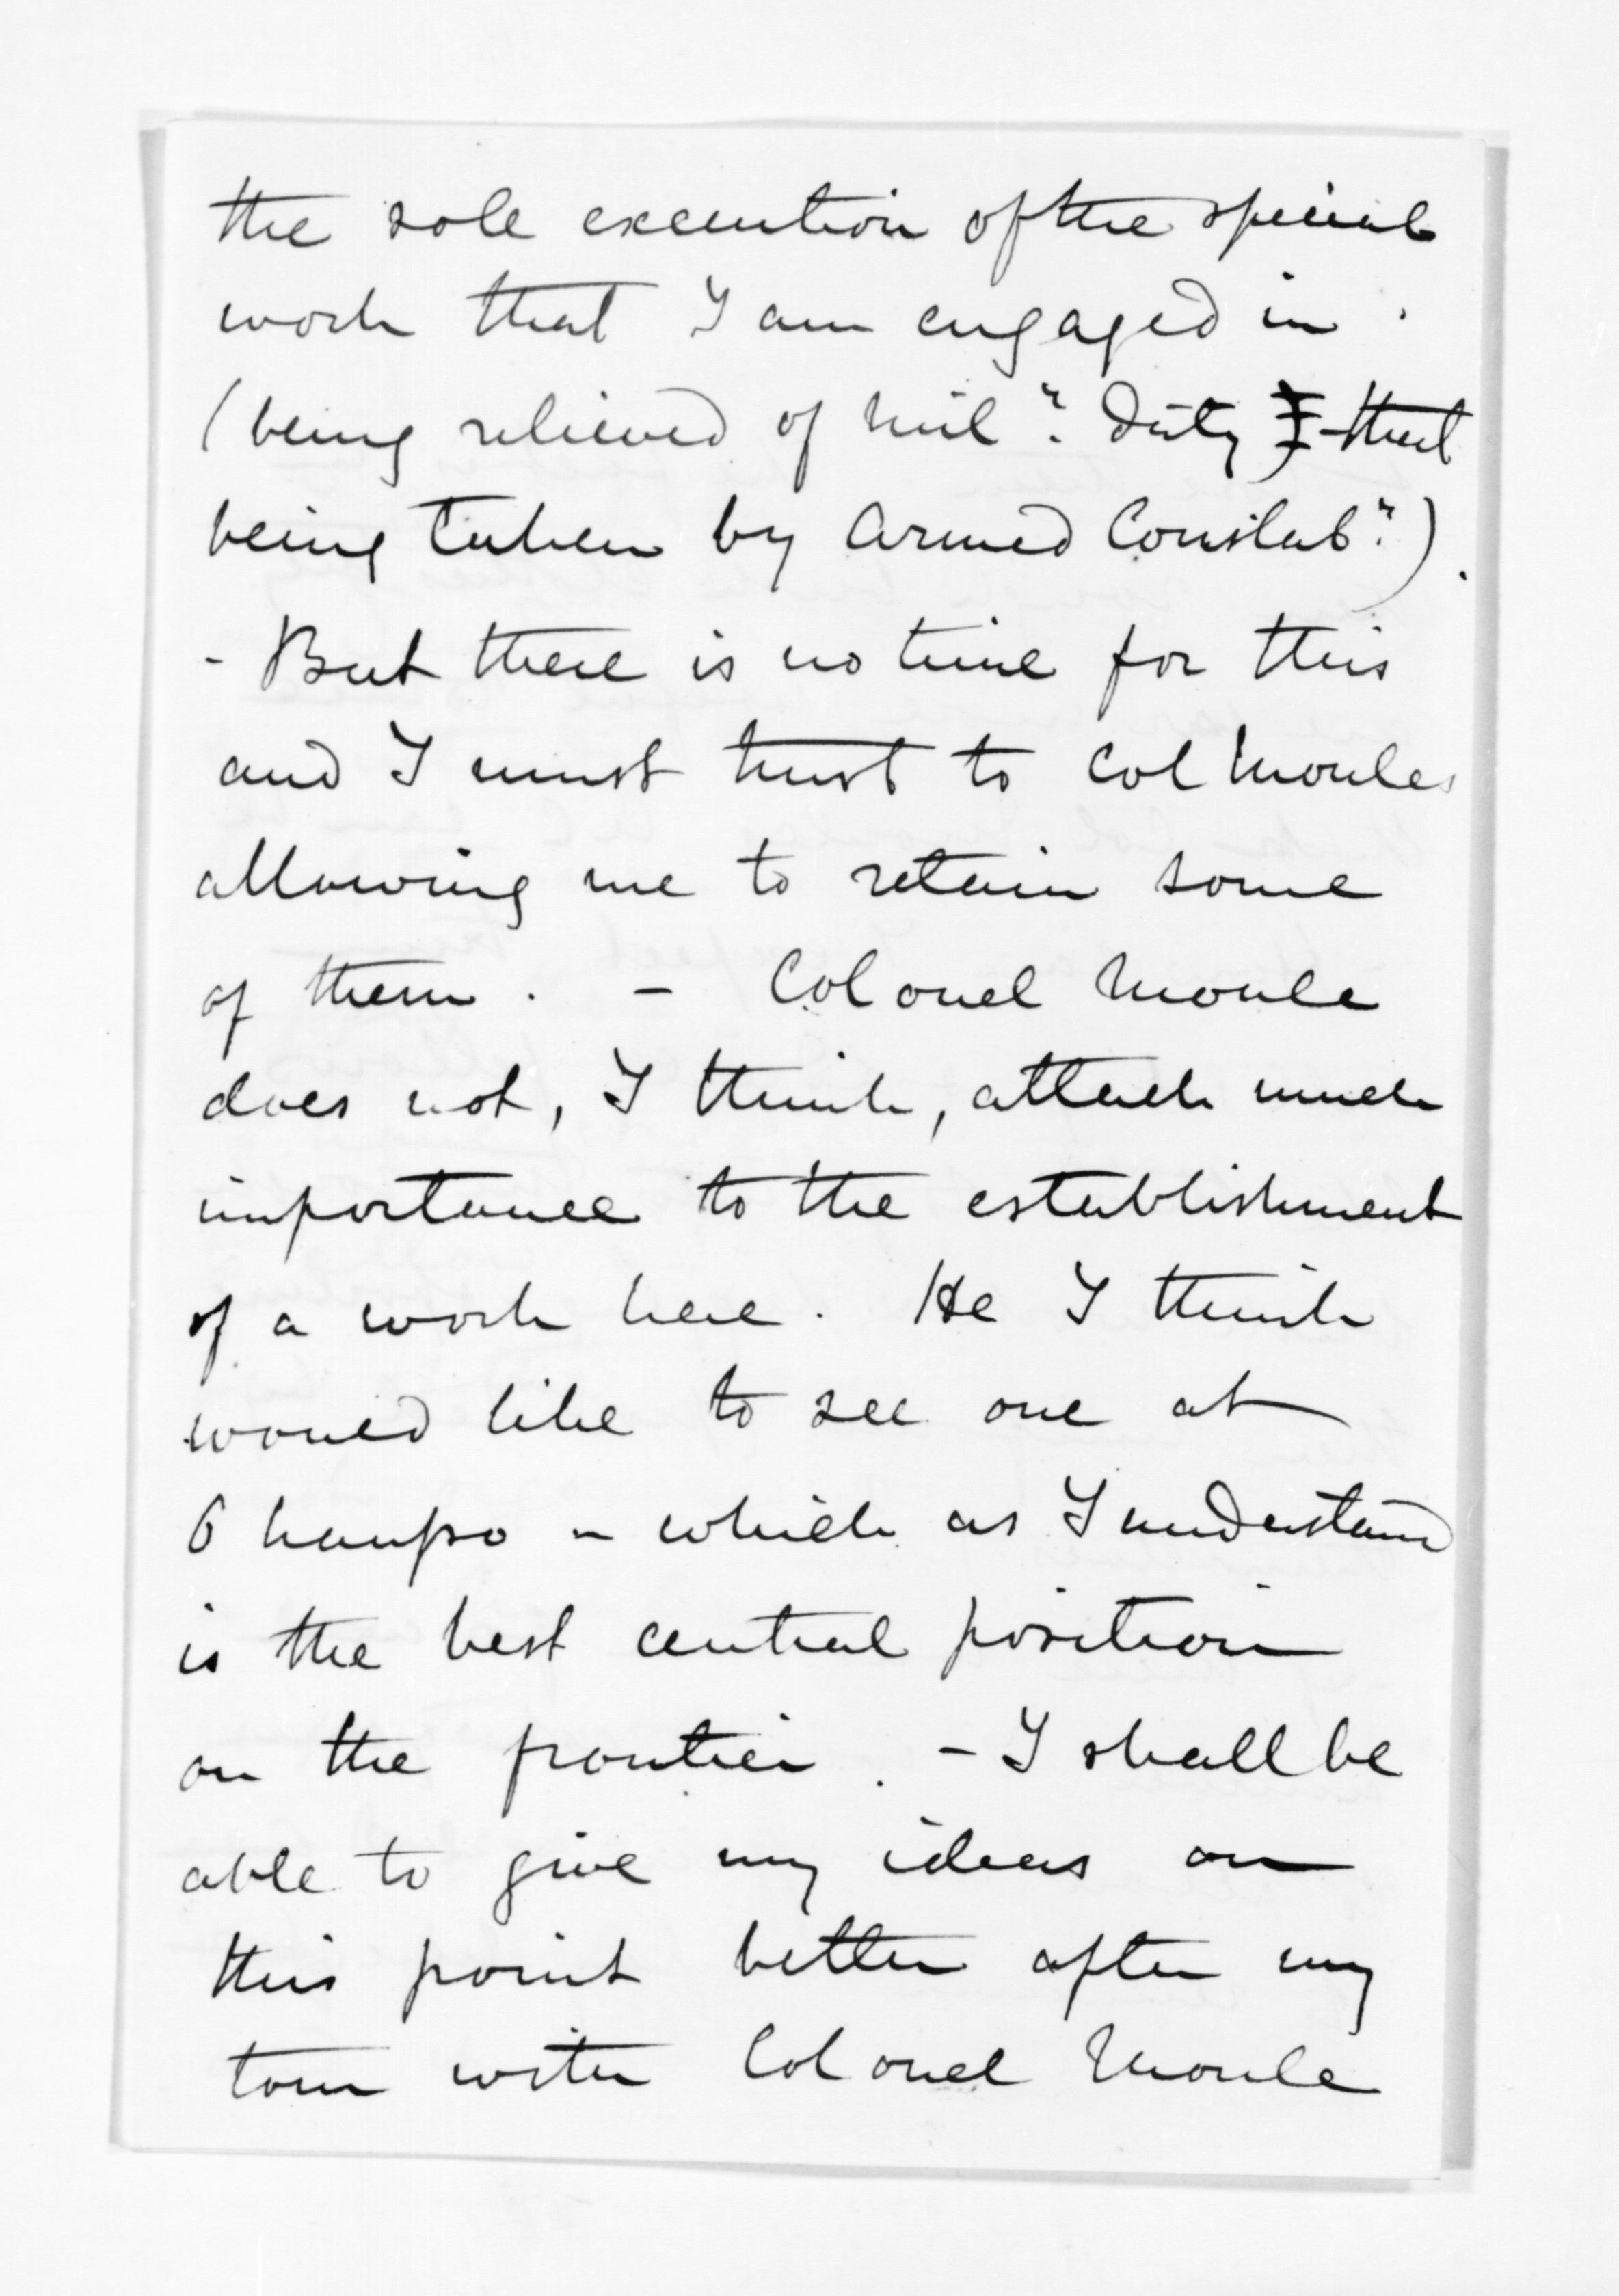 the sole execution of the special
work that I am engaged in.
(being relieved of mily. duty that
being taken by Armed Constaby.).
- But there is no time for this
and I must trust to Col Moules
allowing me to retain some
of them. - Colonel Moule
does not, I think, attach much
importance to the establishment
of a work here. He I think
would like to see one at
Ohaupo - which as I understand
is the best central position
on the frontier. - I shall be
able to give my ideas on
this point better after my
tour with Colonel Moule